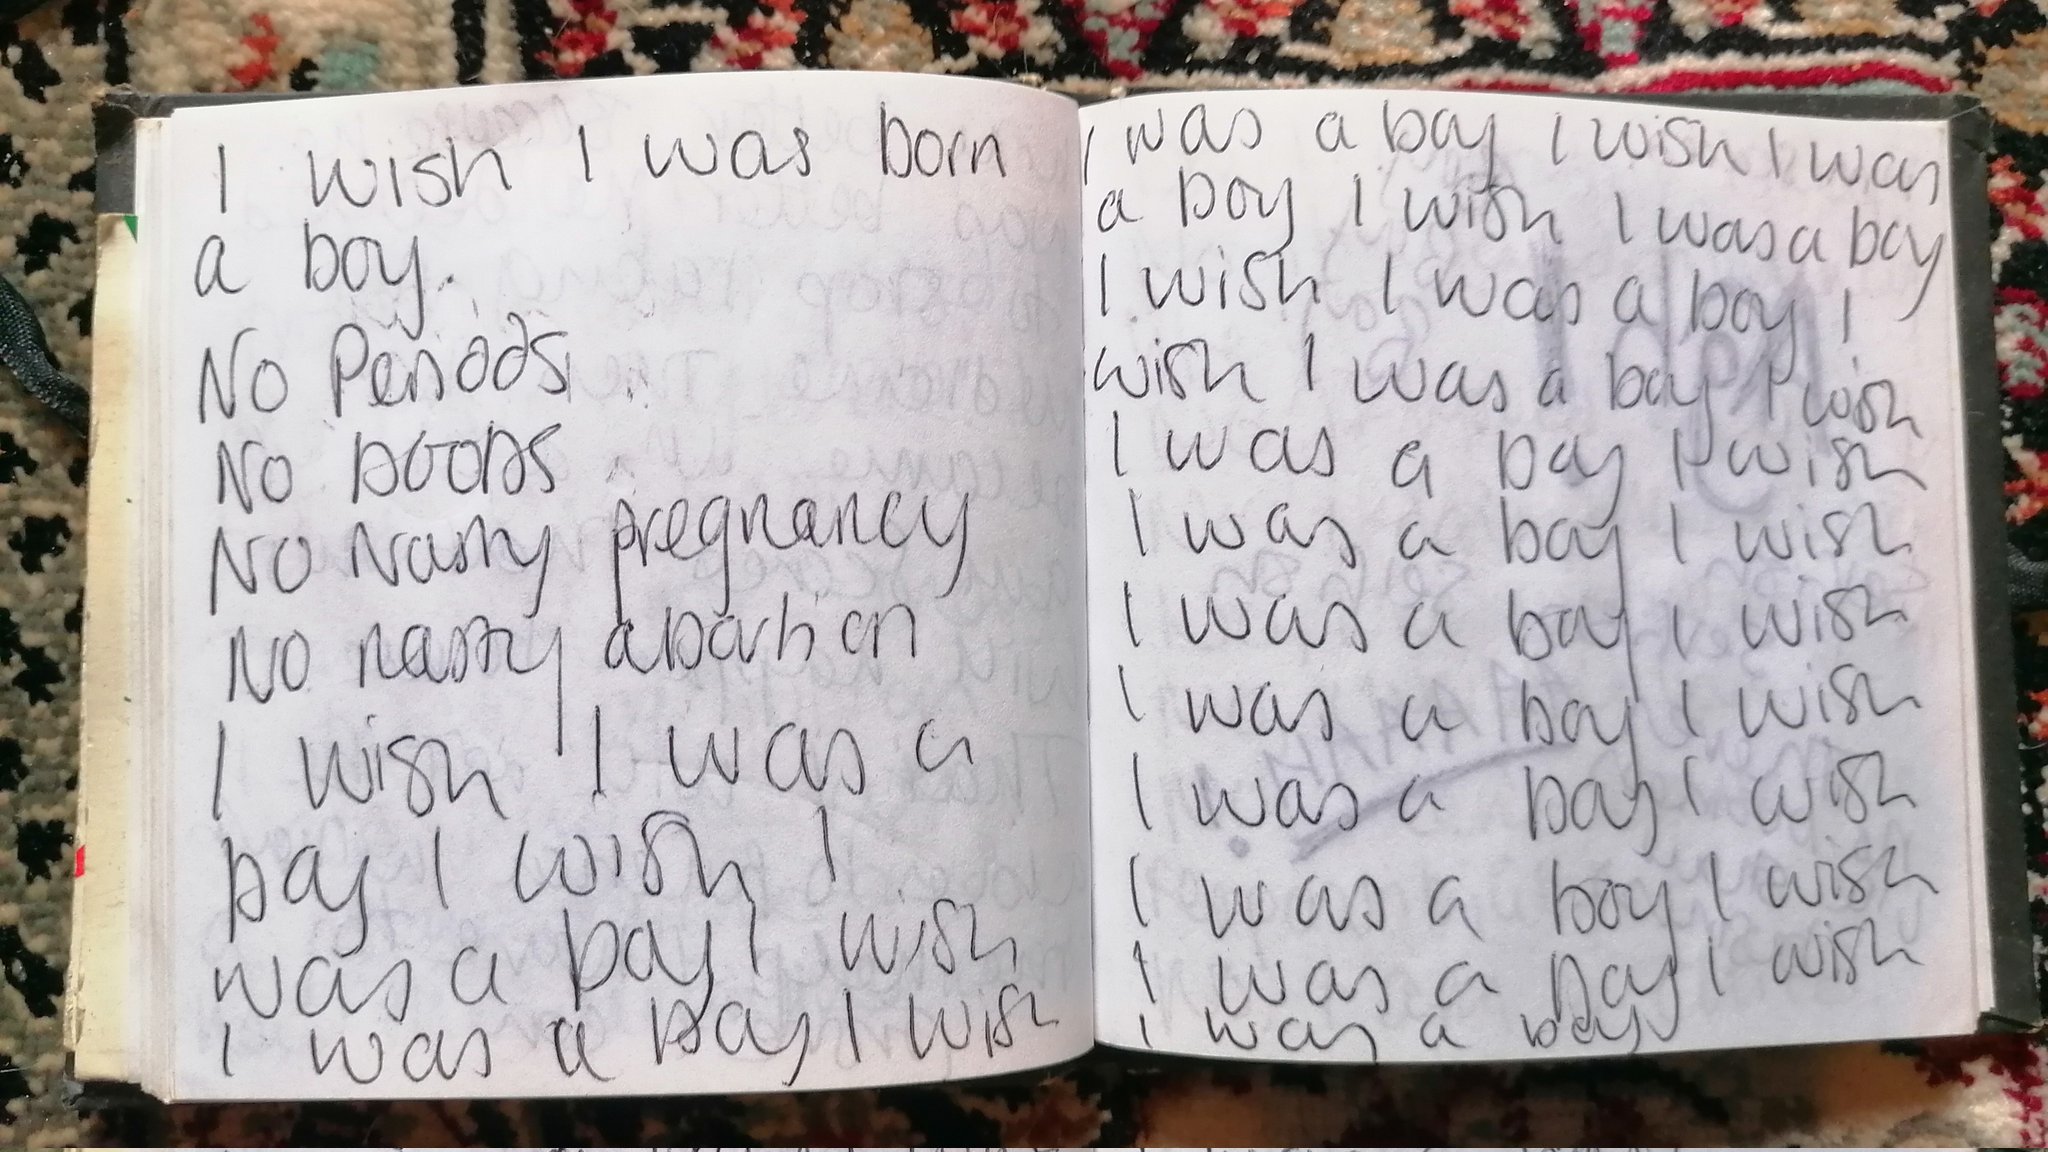 I wish I was born
a boy.
No Periods
No Boobs
No Nasty pregnancy
No nasty abortion
I wish I was a
boy I wish I
was a boy I wish
I was a boy I wish
I was a boy I wish I was
a boy I wish I was a boy
I wish I was a boy I
wish I was a boy I wish
I was a boy I wish
I was a boy I wish
I was a boy I wish
I was a boy I wish
I was a boy I wish
I was a boy I wish
I was a boy I wish
I was a boy